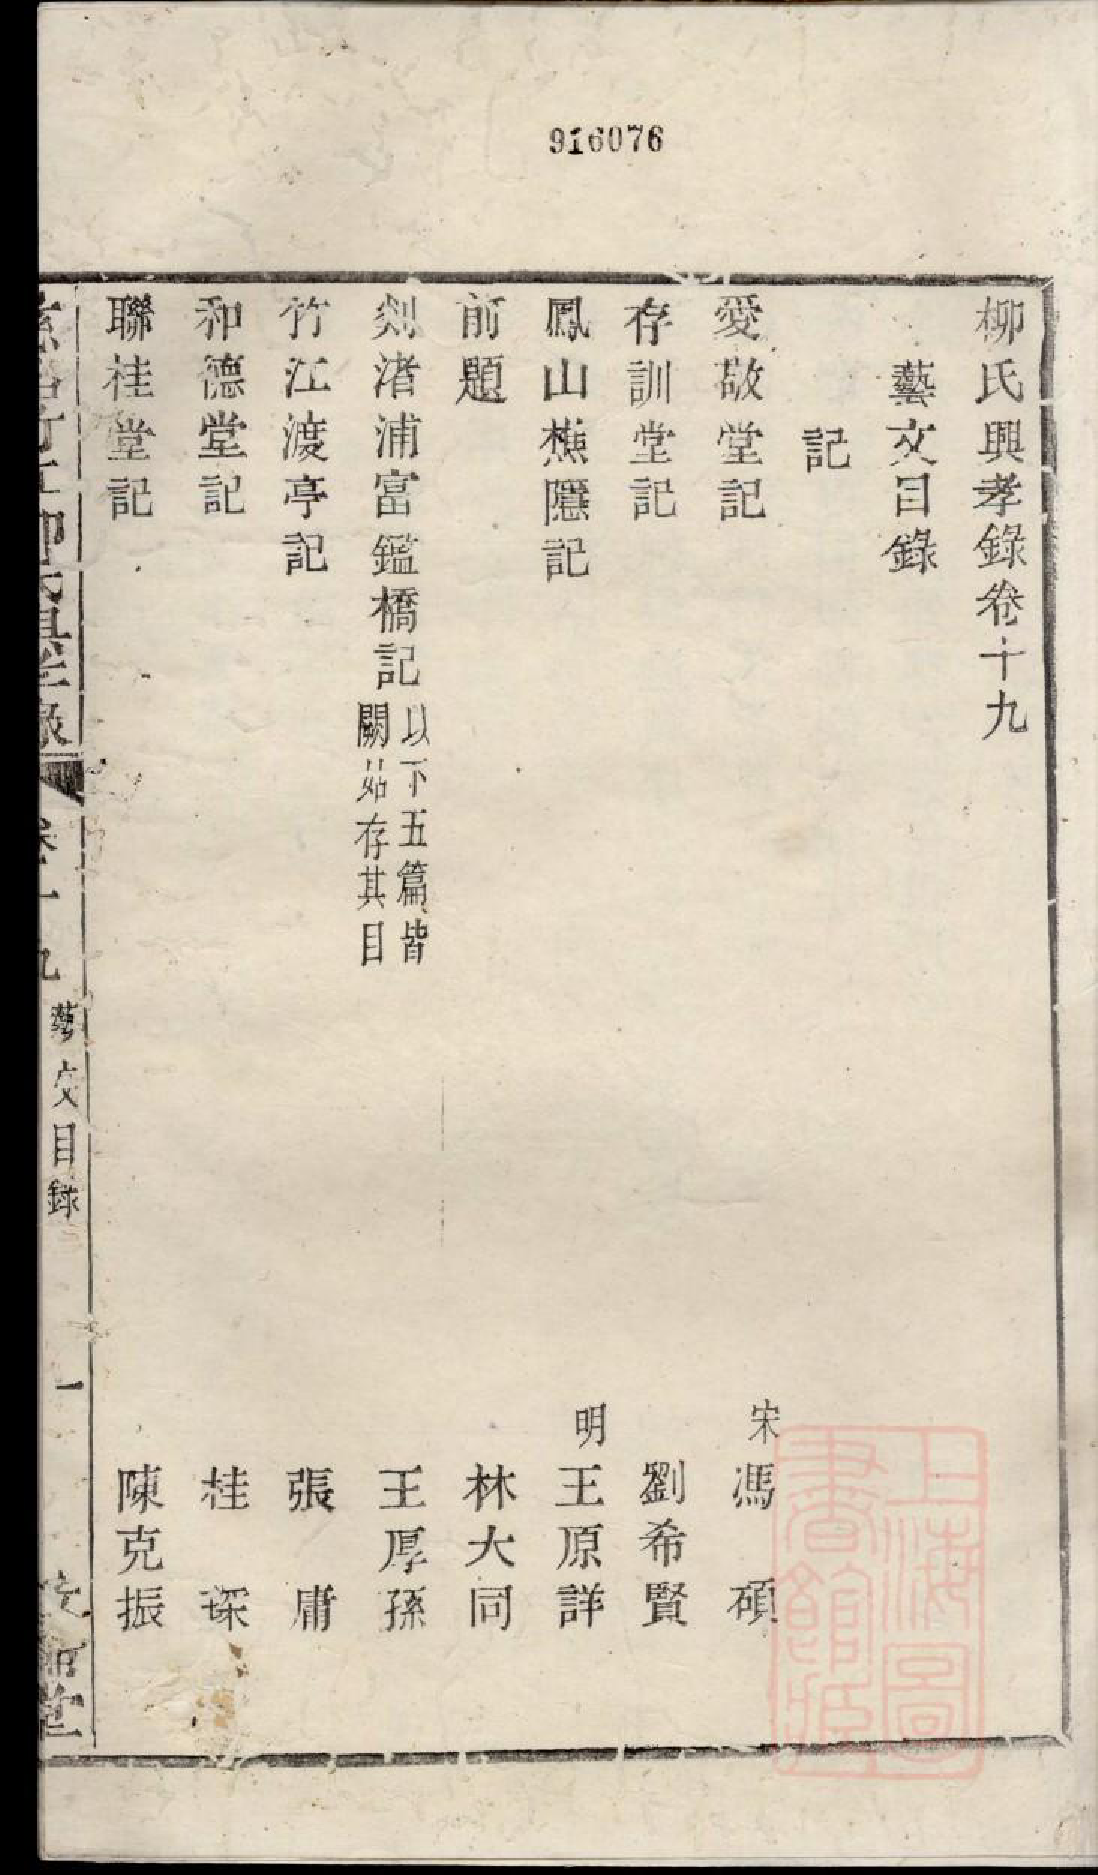 916076
柳氏興孝錄卷十九
藝文目錄
記
愛敬堂記 宋馮碩
存訓堂記 劉希賢
鳳山樵隱記 明王原詳
前題 林大同
剡渚浦富鑑橋記 以下五篇皆
闕姑存其目 王厚孫
竹江渡亭記 張庸
和德堂記 桂琛
聯桂堂記 陳克振
卷十九 藝文目錄 一
上海圖
書館藏